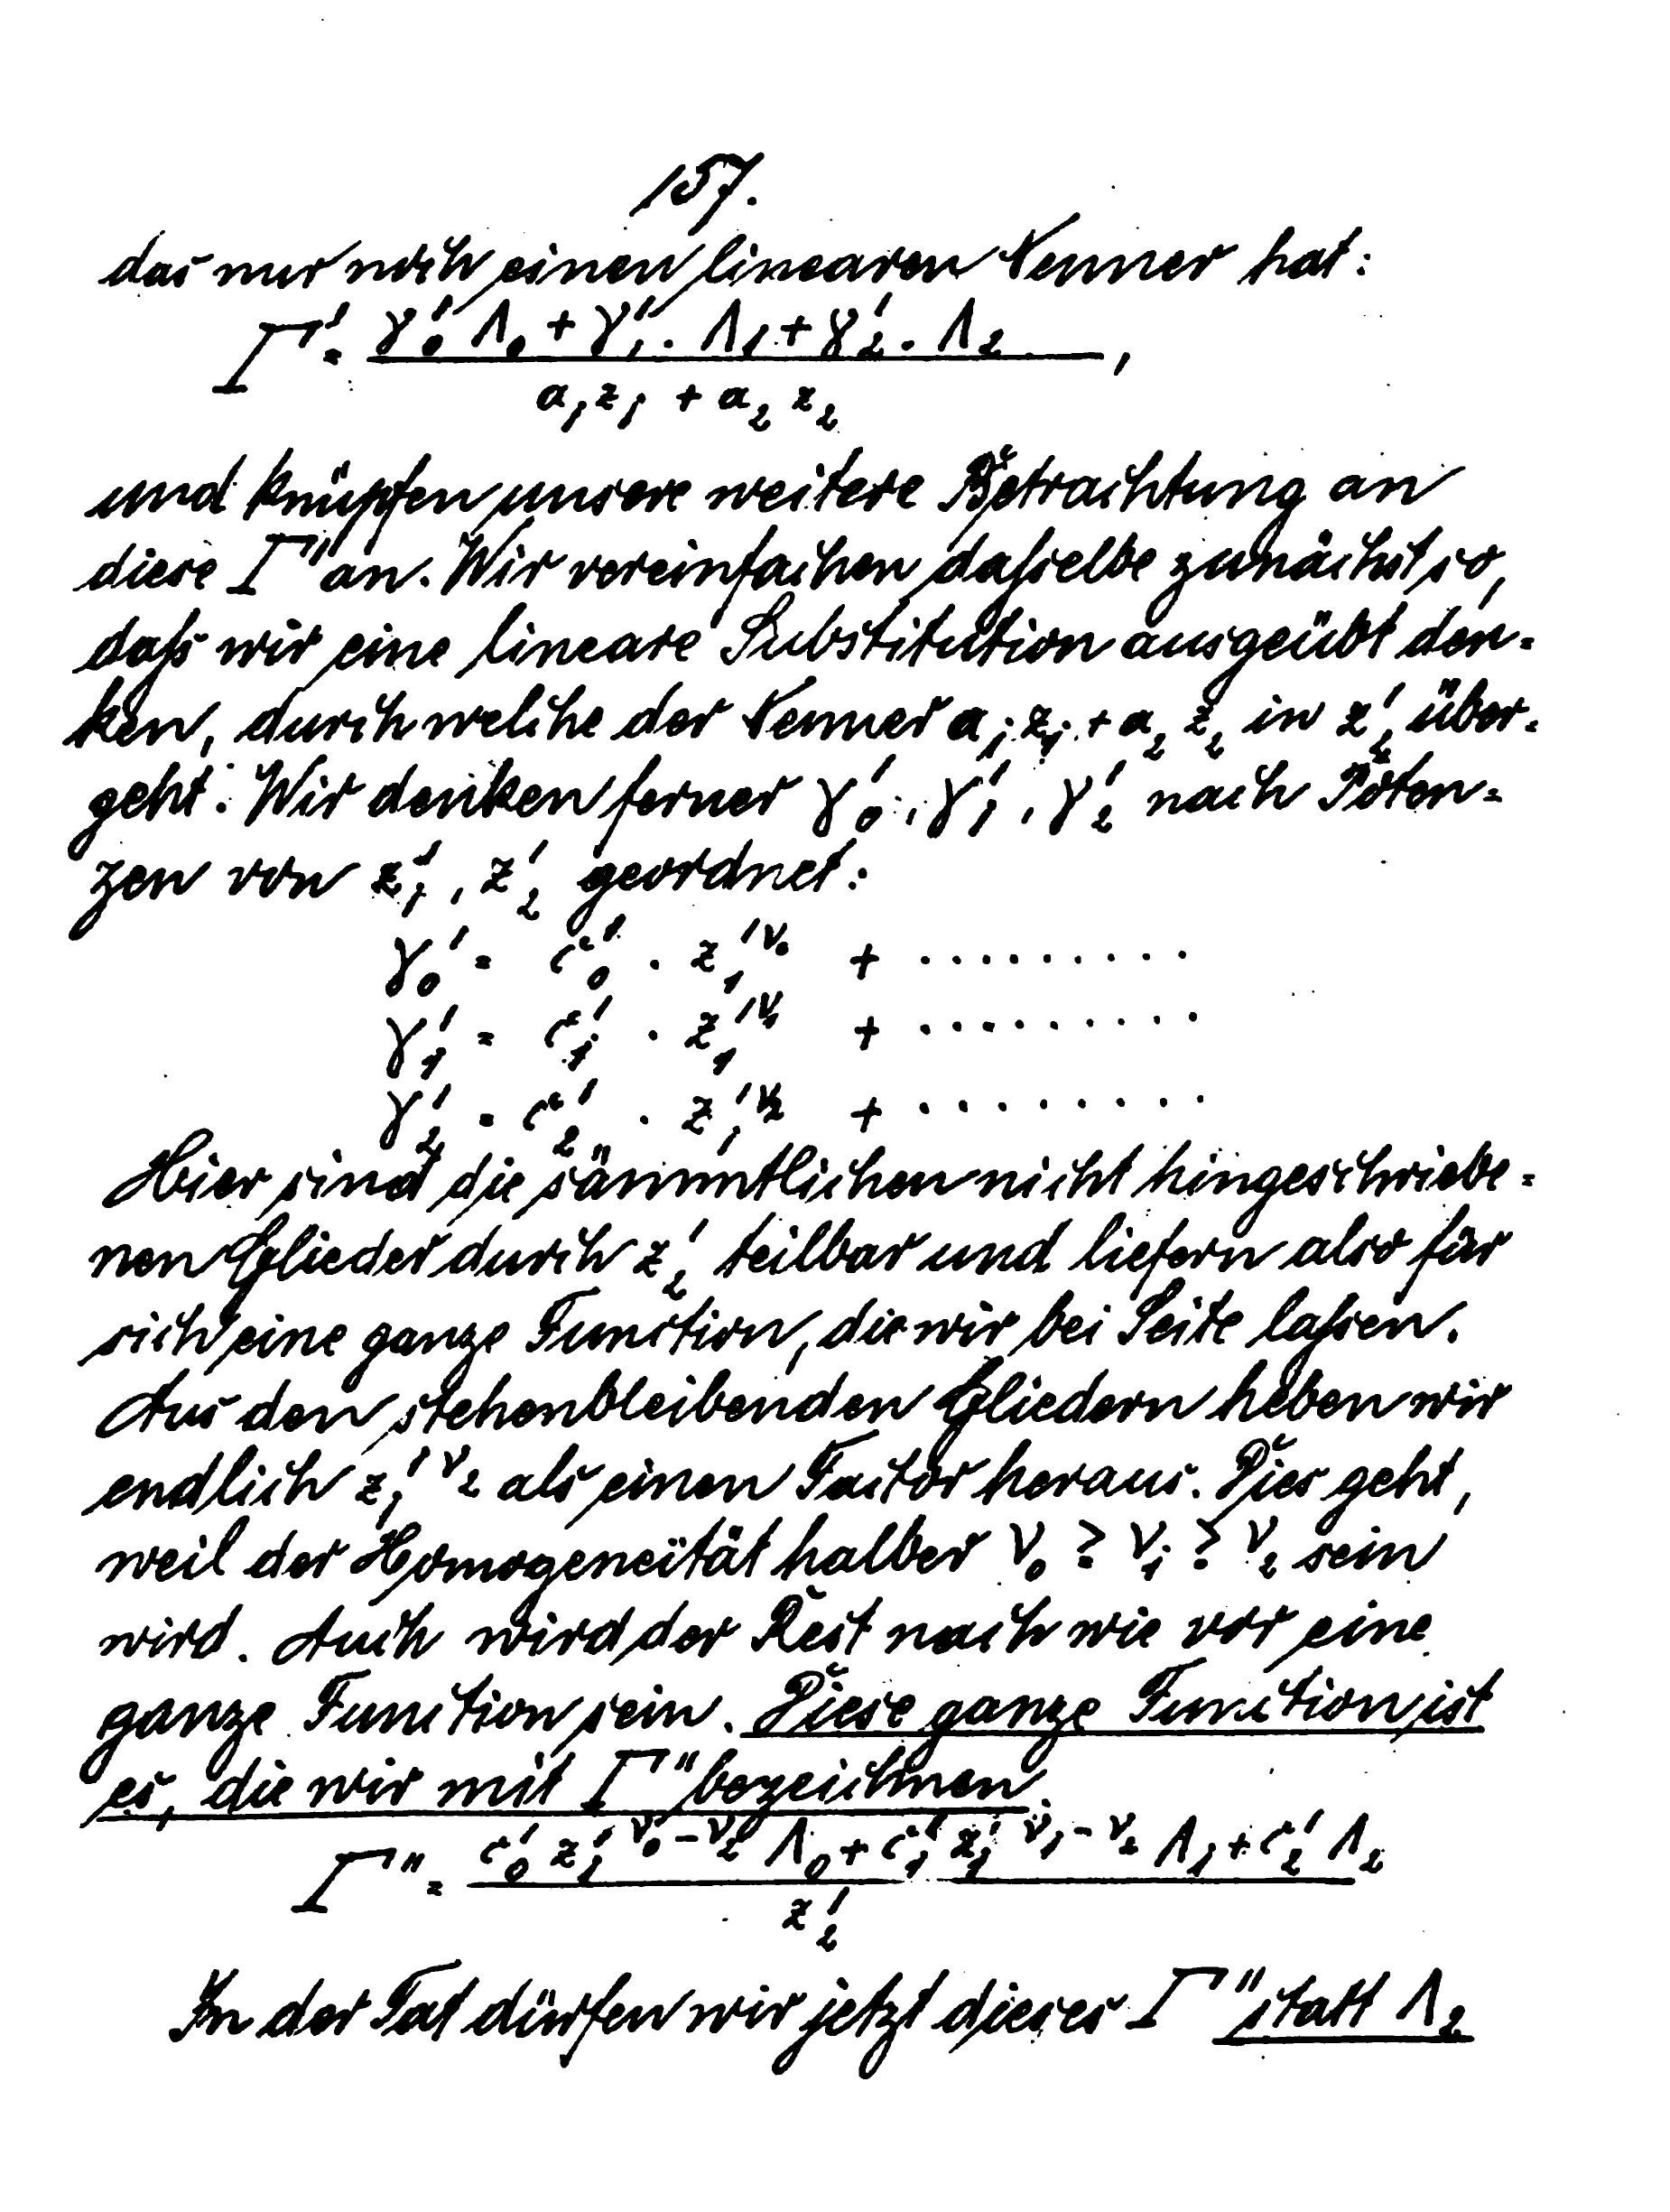 157.
das nur noch einen linearen Nenner hat:
Γ' = (γ'₀ Λ₀ + γ'₁ . Λ₁ + γ'₂ . Λ₂) / (a₁z₁ + a₂z₂),
und knüpfen unsere weitere Betrachtung an
diese Γ' an. Wir vereinfachen daſselbe zunächst so,
daſs wir eine lineare Substitution ausgeübt den=
ken, durch welche der Nenner a₁z₁ + a₂z₂ in z'₂ über=
geht. Wir denken ferner γ'₀, γ'₁, γ'₂ nach Poten=
zen von z'₁, z'₂ geordnet:
γ'₀ = c'₀ . z'₁^ν₀ + .........
γ'₁ = c'₁ . z'₁^ν₁ + .........
γ'₂ = c'₂ . z'₁^ν₂ + .........
Hier sind die sämmtlichen nicht hingeschriebe=
nen Glieder durch z'₂ teilbar und liefern also für
sich eine ganze Function, die wir bei Seite laſsen.
Aus den stehenbleibenden Gliedern heben wir
endlich z'₁^ν₂ als einen Factor heraus. Dies geht,
weil der Homogeneität halber ν₀ ≥ ν₁ ≥ ν₂ sein
wird. Auch wird der Rest nach wie vor eine
ganze Function sein. Diese ganze Function ist
es, die wir mit Γ'' bezeichnen.
Γ'' = (c'₀ z'₁^(ν₀-ν₂) Λ₀ + c'₁ z'₁^(ν₁-ν₂) Λ₁ + c'₂ Λ₂) / z'₂
In der Tat dürfen wir jetzt dieses Γ'' statt Λ₂